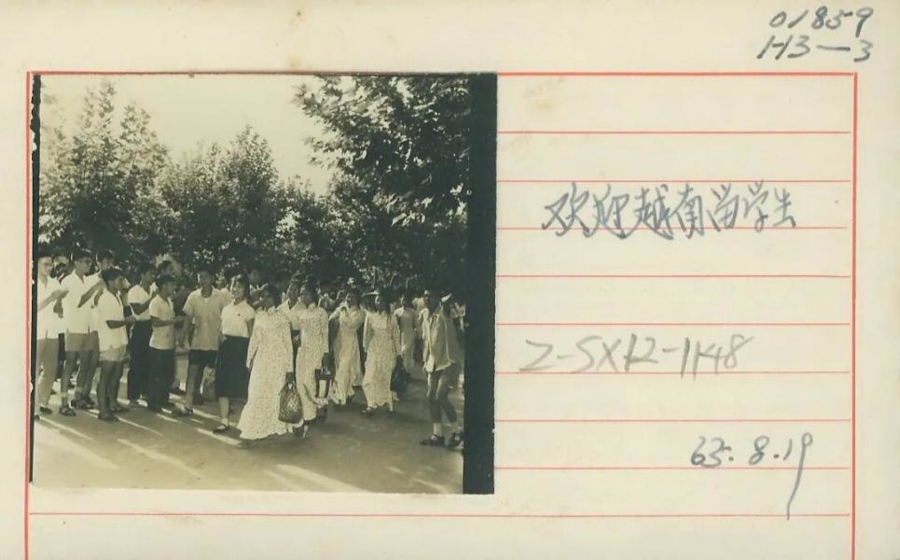 01859
H3-3
欢迎越南留学生
Z-SX12-1148
63.8.19